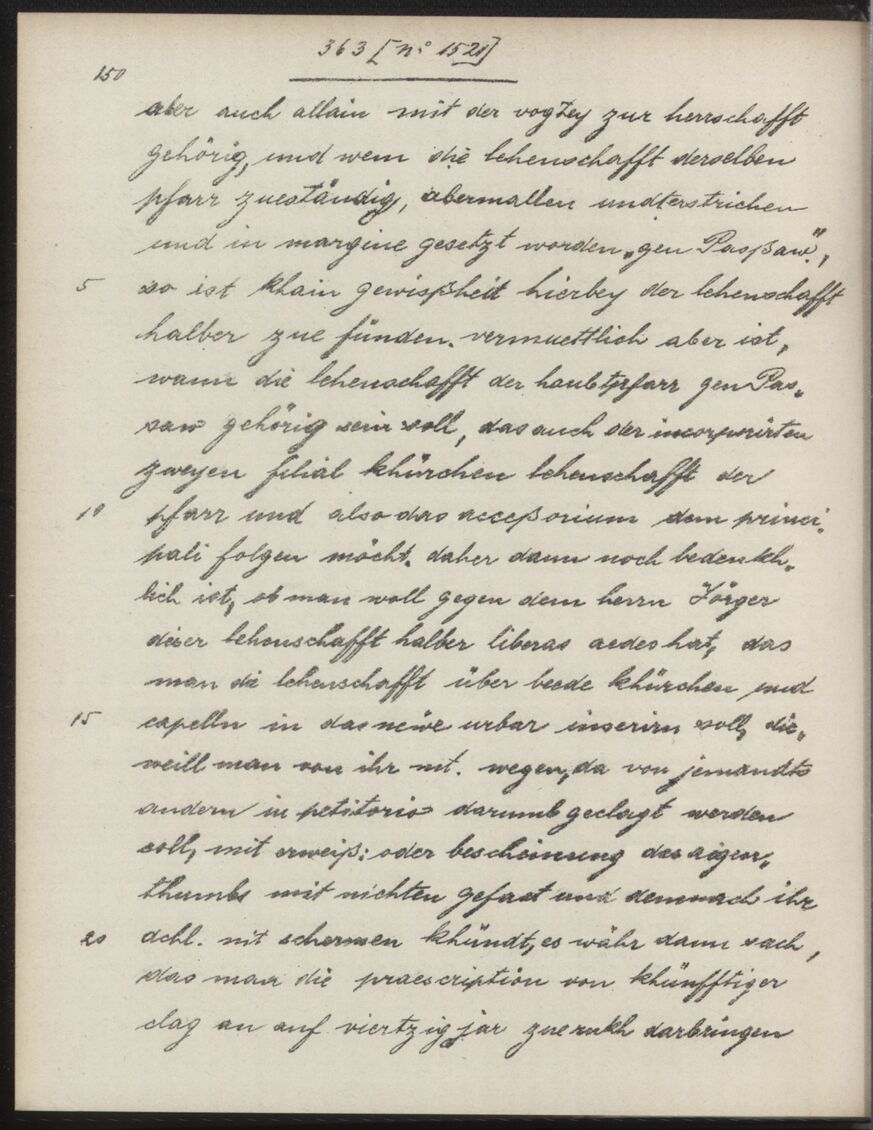 363 [n° 1521]
150
aber auch allain mit der vogtey zur herrschafft
gehörig, und wem die lehenschafft derselben
pfarr zueständig, abermallen undterstrichen
und in margine gesetzt worden „gen Paßaw",
5 so ist khain gewißheit hierbey der lehenschafft
halber zue fünden. vermuettlich aber ist,
wann die lehenschafft der haubtpfarr gen Pas„
saw gehörig sein soll, das auch der incorporirten
zweyen filial khürchen lehenschafft der
10 pfarr und also das acceßorium dem princi„
pali folgen möcht. daher dann noch bedenkh„
lich ist, ob man woll gegen dem herrn Jörger
diser lehenschafft halber liberas aedes hat, das
man die lehenschafft über beede khürchen und
15 capelln in das newe urbar inserirn soll, die„
weill man von ihr mt. wegen, da von jemandts
andern in petitorio darumb geclagt werden
soll, mit erweiß: oder bescheinung des aigen„
thumbs mit nichten gefast und demnach ihr
20 dchl. nit schermen khündt, es währ dann sach,
das man die praescription von khünfftiger
clag an auf viertzig jar zuerukh darbringen